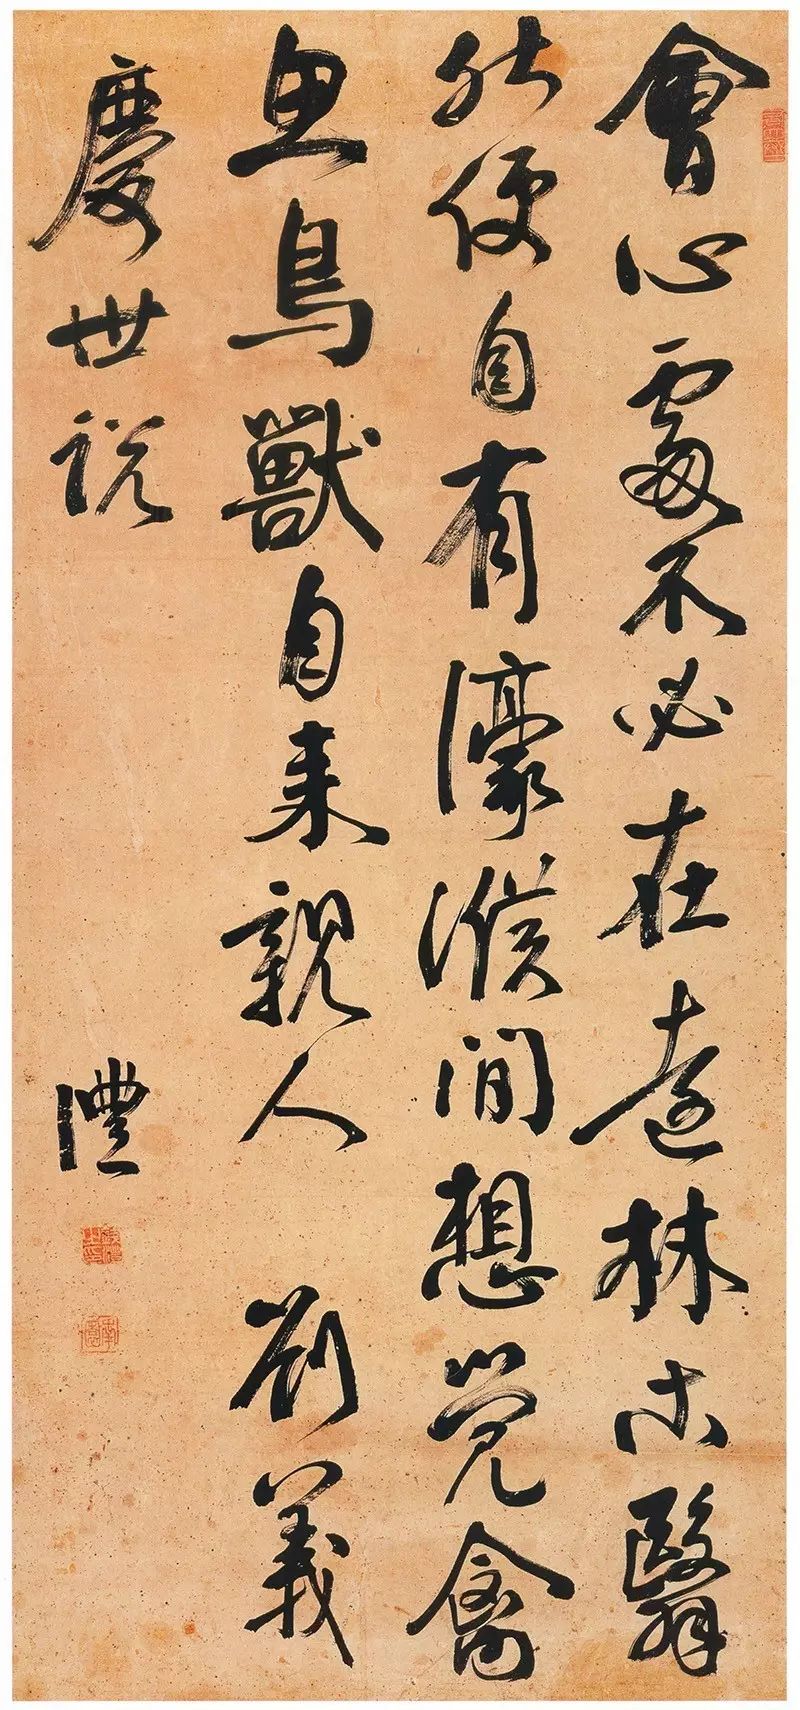 會心處不必在遠林木翳
然便自有濠濮間想覺禽
魚鳥獸自来親人 劉義
慶世説
澧